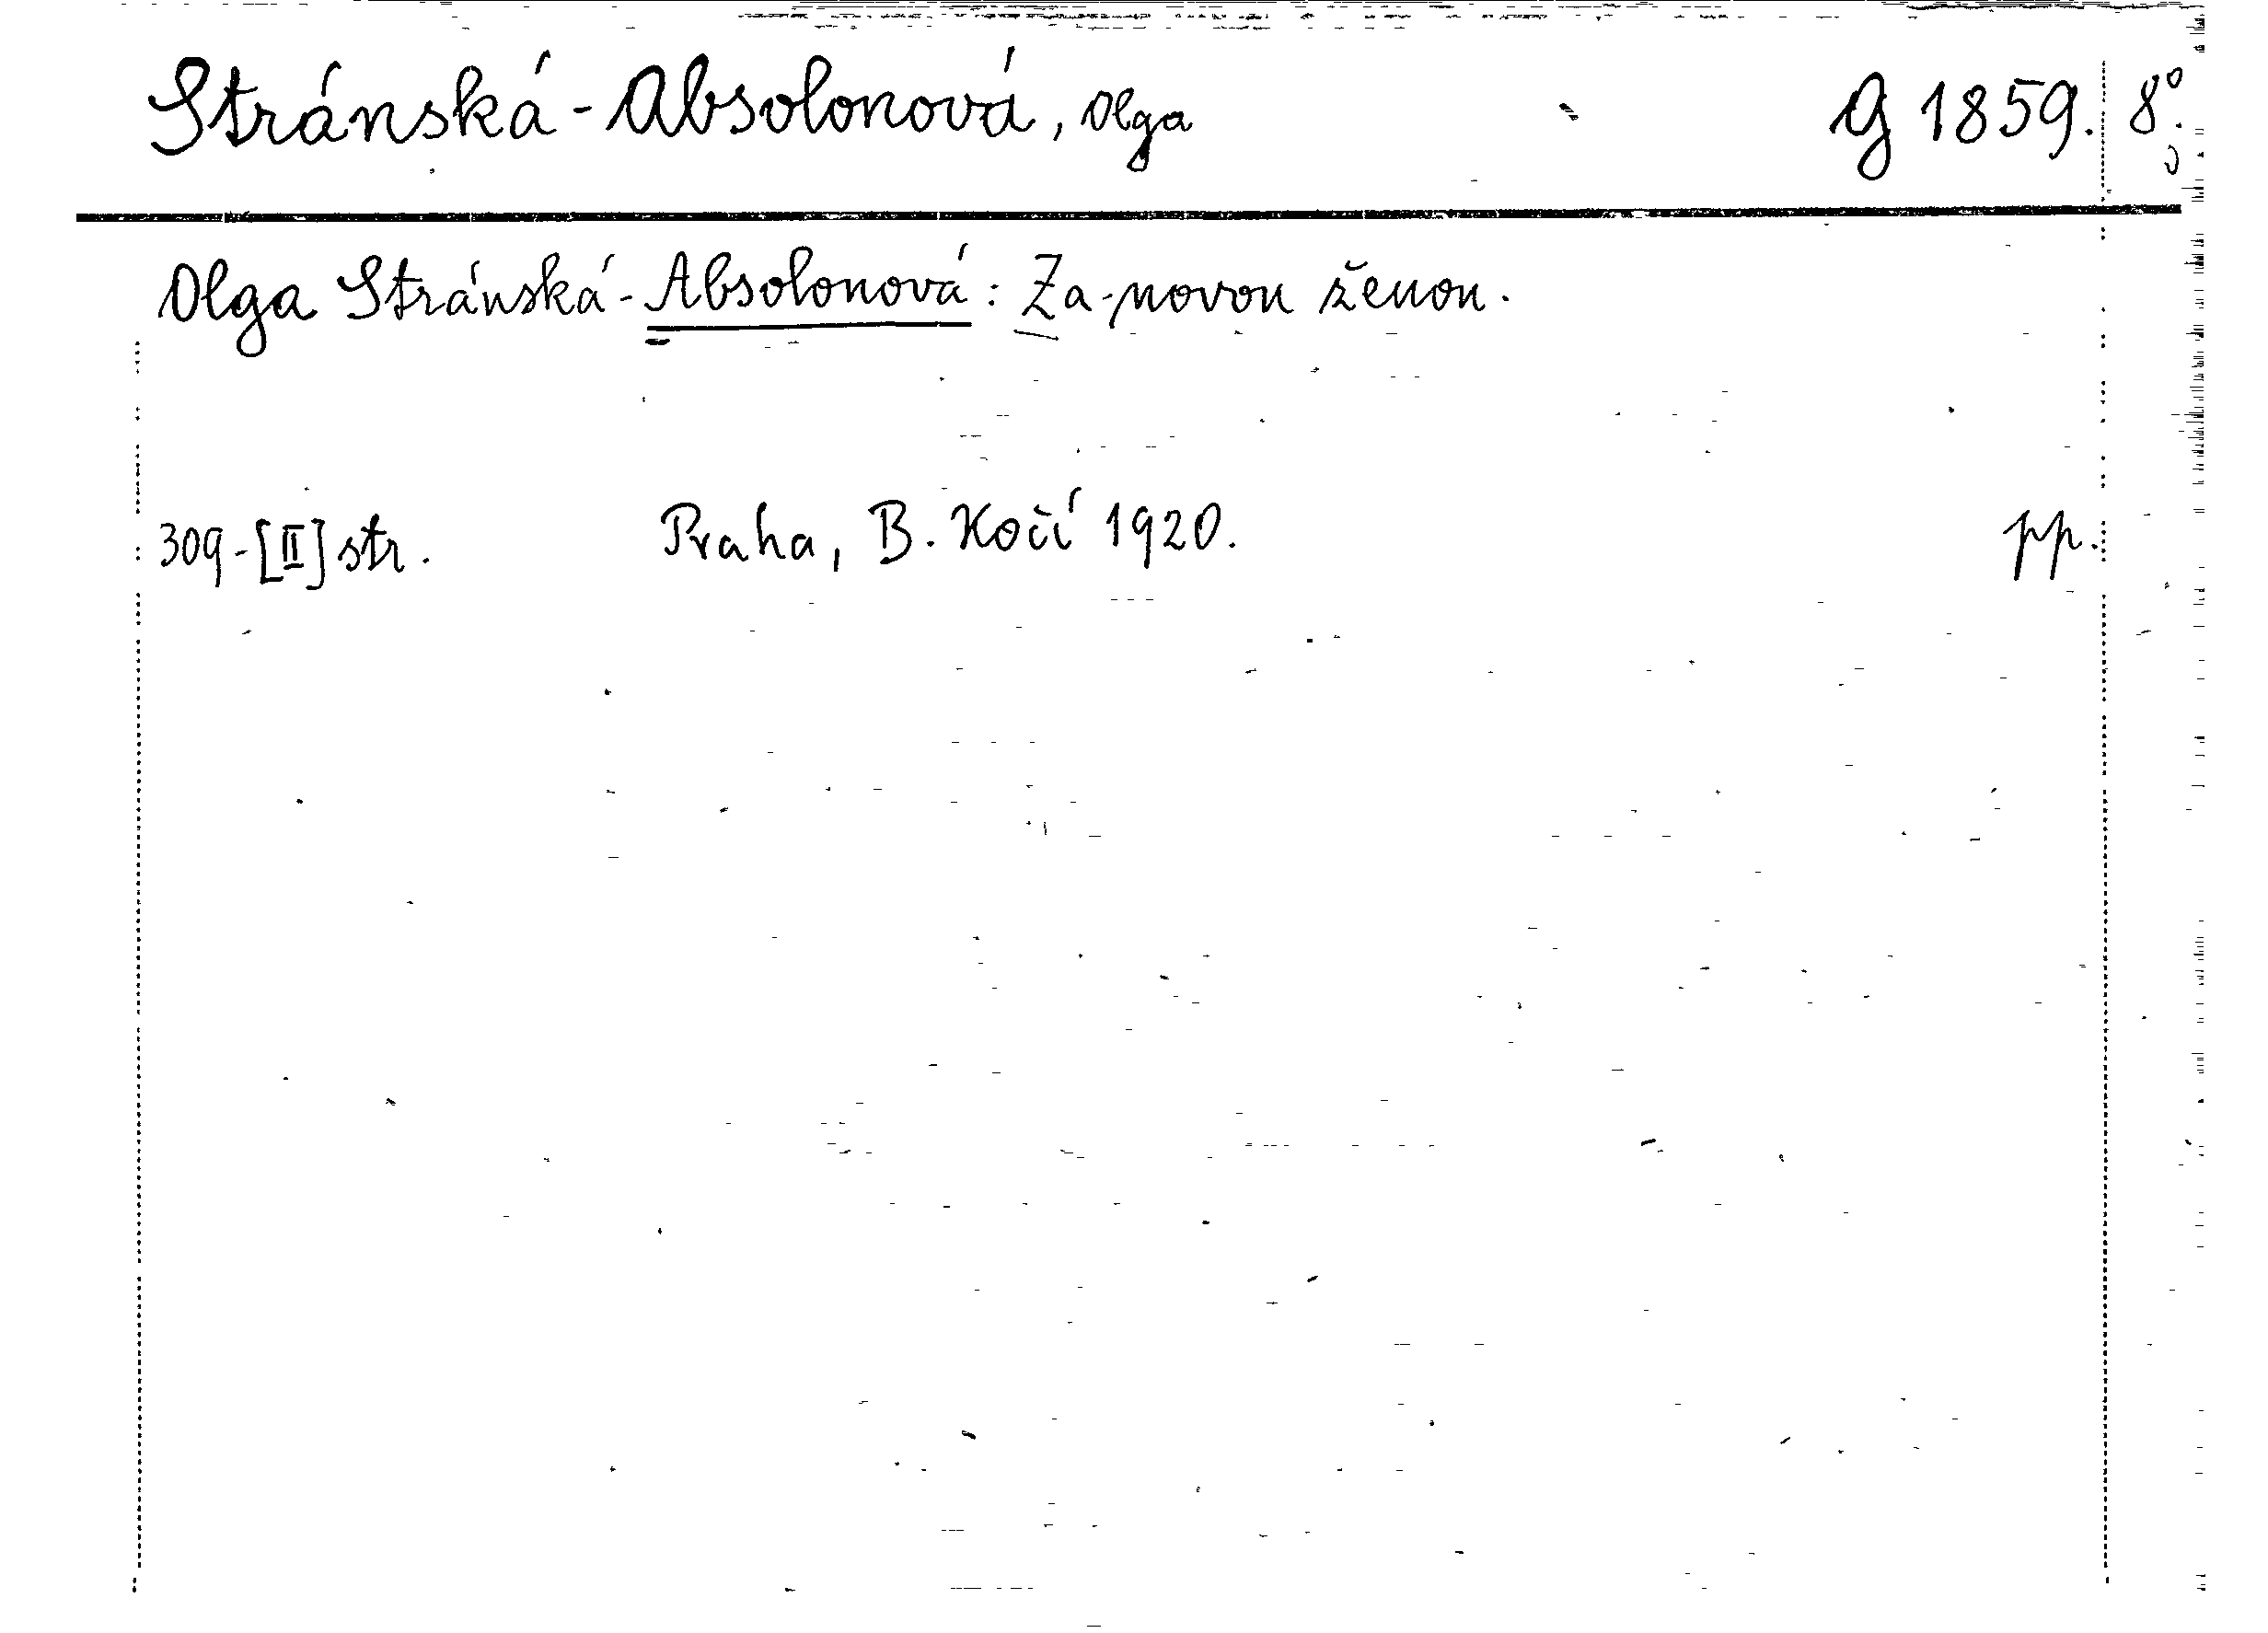 Stránská-Absolonová, Olga G 1859. 8°.
Olga Stránská-Absolonová: Za novou ženou.
309-[II] str. Praha, B. Kočí 1920. pp.